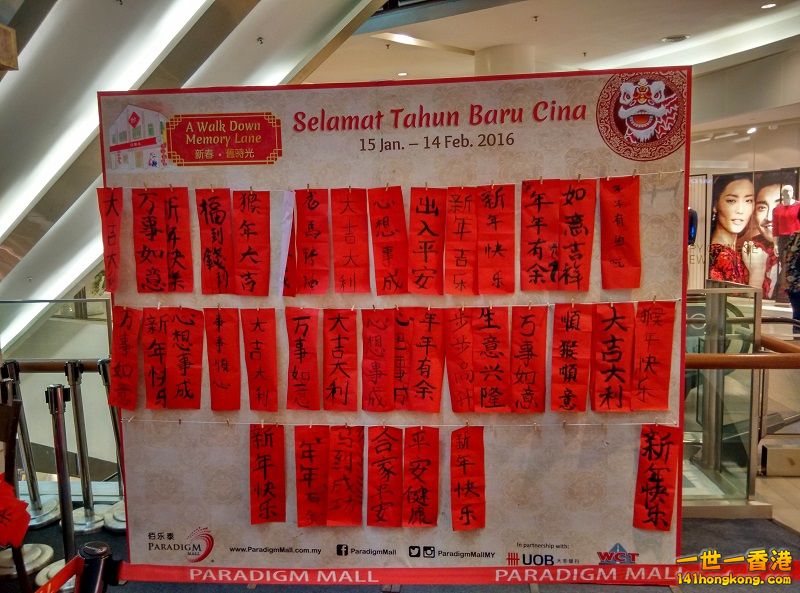 A Walk Down
Memory Lane
新春·舊時光
Selamat Tahun Baru Cina
15 Jan. – 14 Feb. 2016
大吉大
万事如意
新年快乐
福到
猴年大吉
大吉大利
心想事成
出入平安
新年
新年快乐
年年有余
如意吉祥
万事如意
新年快
心想事成
事事顺心
大吉大利
万事如意
大吉大利
心想事成
心想事
年年有余
步步高
生意兴隆
万事如意
大吉大利
猴年快乐
新年快乐
年年
马到成
合家平安
平安健康
新年快乐
新年快乐
佰乐泰
PARADIGM
MALL
www.ParadigmMall.com.my
ParadigmMall
ParadigmMallMY
In partnership with:
UOB 大華銀行
WCT
PARADIGM MALL
PARADIGM MALL
一世一香港
141hongkong.com